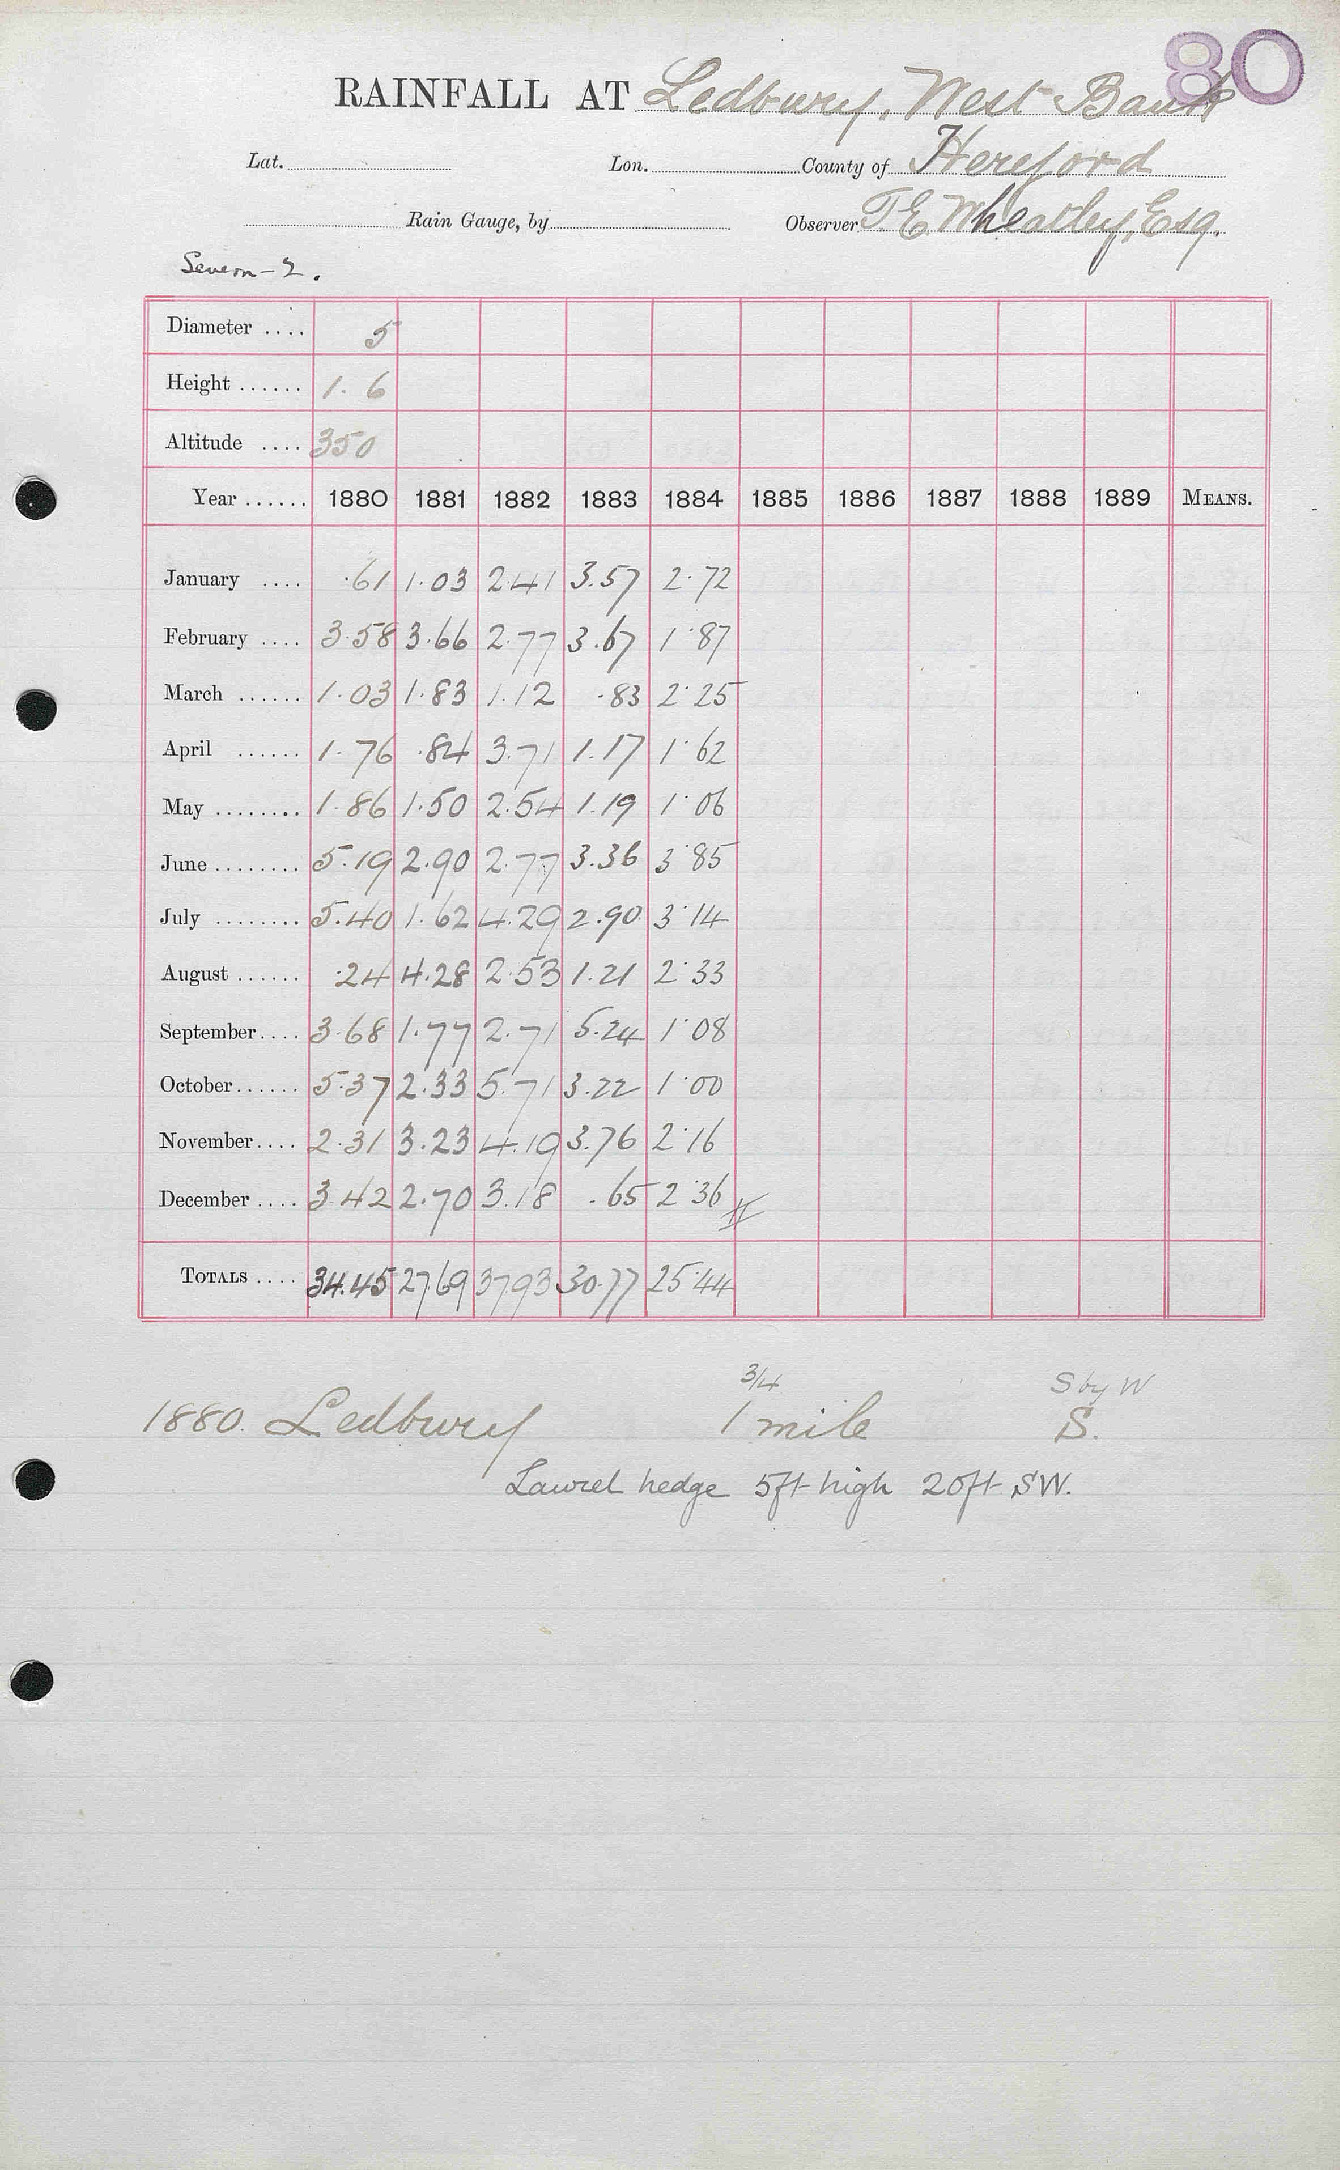 80
RAINFALL AT Ledbury, West Bank
Lat. Lon. County of Hereford
Rain Gauge, by Observer T. E. Wheatley, Esq.
Severn-2.
Diameter .... 5
Height ...... 1. 6
Altitude .... 350
Year ...... 1880 1881 1882 1883 1884 1885 1886 1887 1888 1889 MEANS.
January .... .61 1.03 2.41 3.57 2.72
February .... 3.58 3.66 2.77 3.67 1.87
March ...... 1.03 1.83 1.12 .83 2.25
April ...... 1.76 .84 3.71 1.17 1.62
May ........ 1.86 1.50 2.54 1.19 1.06
June ........ 5.19 2.90 2.77 3.36 3.85
July ........ 5.40 1.62 4.29 2.90 3.14
August ...... .24 4.28 2.53 1.21 2.33
September.... 3.68 1.77 2.71 5.24 1.08
October...... 5.37 2.33 5.71 3.22 1.00
November.... 2.31 3.23 4.19 3.76 2.16
December .... 3.42 2.70 3.18 .65 2.36
TOTALS .... 34.45 27.69 37.93 30.77 25.44
3/4 S by W
1880. Ledbury 1 mile S.
Laurel hedge 5ft high 20ft SW.